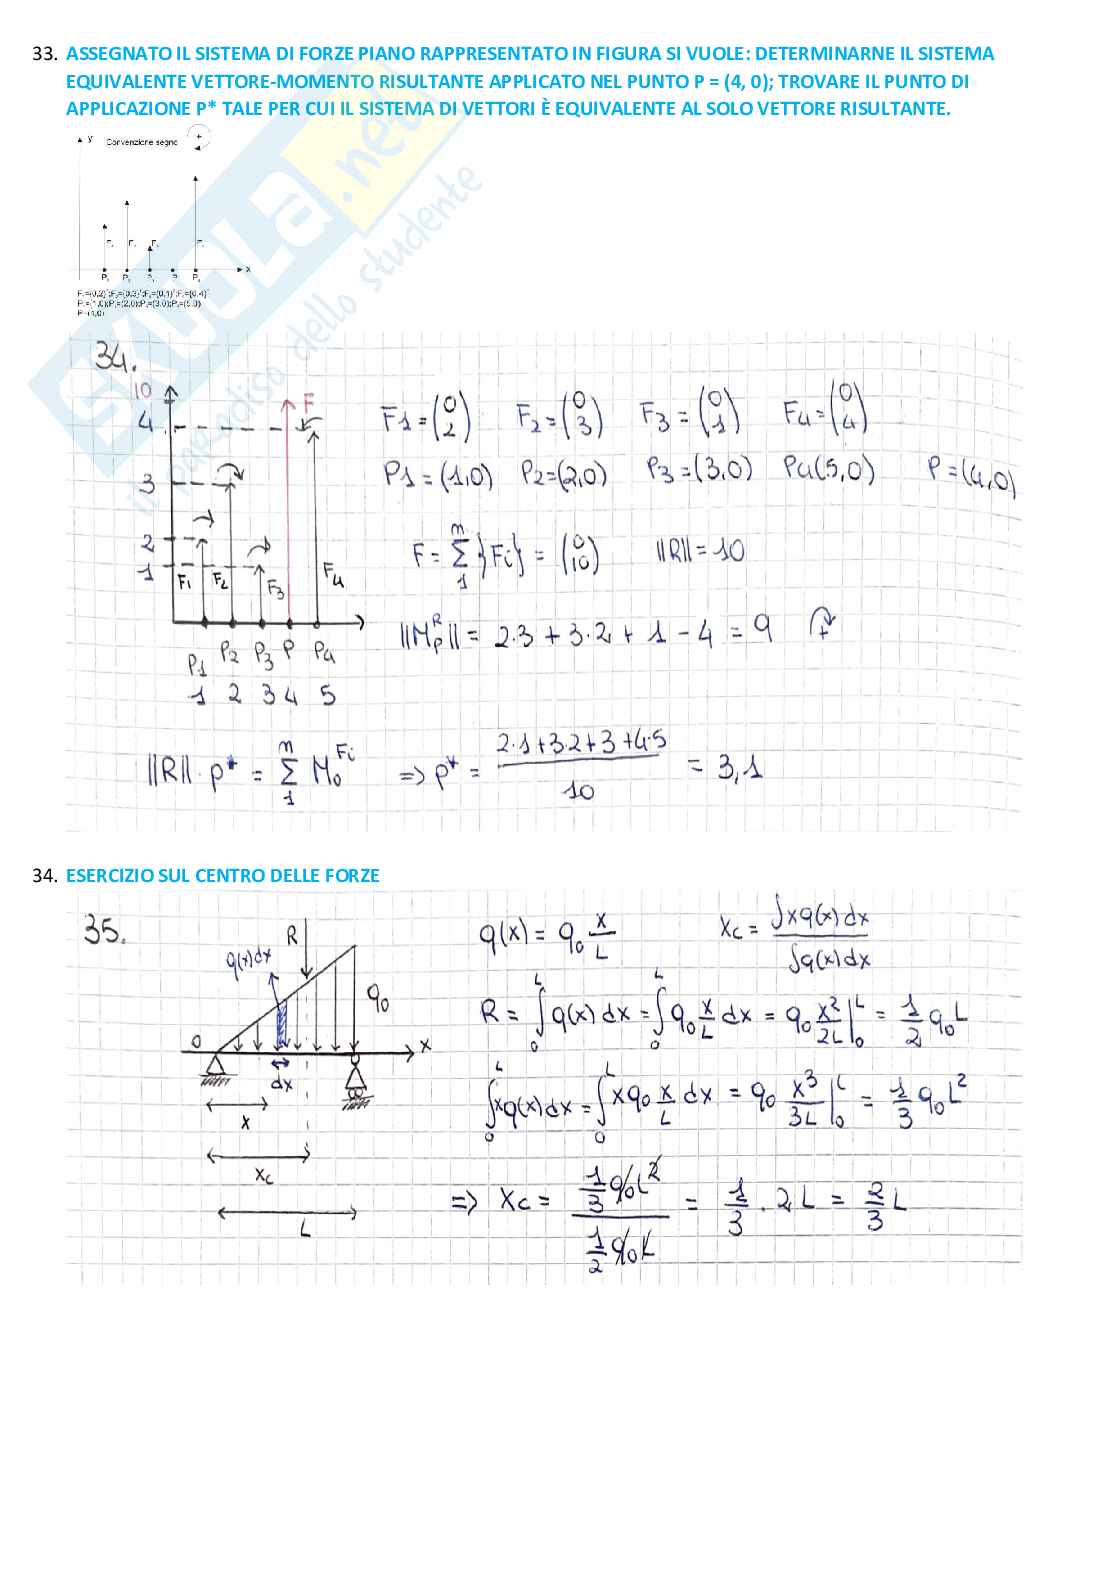 33. ASSEGNATO IL SISTEMA DI FORZE PIANO RAPPRESENTATO IN FIGURA SI VUOLE: DETERMINARNE IL SISTEMA
EQUIVALENTE VETTORE-MOMENTO RISULTANTE APPLICATO NEL PUNTO P = (4, 0); TROVARE IL PUNTO DI
APPLICAZIONE P* TALE PER CUI IL SISTEMA DI VETTORI È EQUIVALENTE AL SOLO VETTORE RISULTANTE.
y Convenzione segno +
x
SKUOLA.net
il paradiso dello studente
34.
10 F
4
3
2
1
F1 F2 F3 F4
P1 P2 P3 P P4
1 2 3 4 5
F1 = (0 2) F2 = (0 3) F3 = (0 1) F4 = (0 4)
P1 = (1,0) P2 = (2,0) P3 = (3,0) P4 (5,0) P = (4,0)
F = Σ_1^n {Fi} = (0 10) ||R|| = 10
||M_P^R|| = 2·3 + 3·2 + 1 - 4 = 9 +
||R|| · p* = Σ_1^n M_0^Fi => p* = (2·1+3·2+3+4·5)/10 = 3,1
34. ESERCIZIO SUL CENTRO DELLE FORZE
35.
R
q(x)dx
q0
O x
dx
x
xc
L
q(x) = q0 x/L xc = ∫xq(x)dx / ∫q(x)dx
R = ∫_0^L q(x) dx = ∫_0^L q0 x/L dx = q0 x²/2L |_0^L = 1/2 q0 L
∫_0^L xq(x)dx = ∫_0^L x q0 x/L dx = q0 x³/3L |_0^L = 1/3 q0 L²
=> xc = (1/3 q0 L²)/(1/2 q0 L) = 1/3 · 2L = 2/3 L